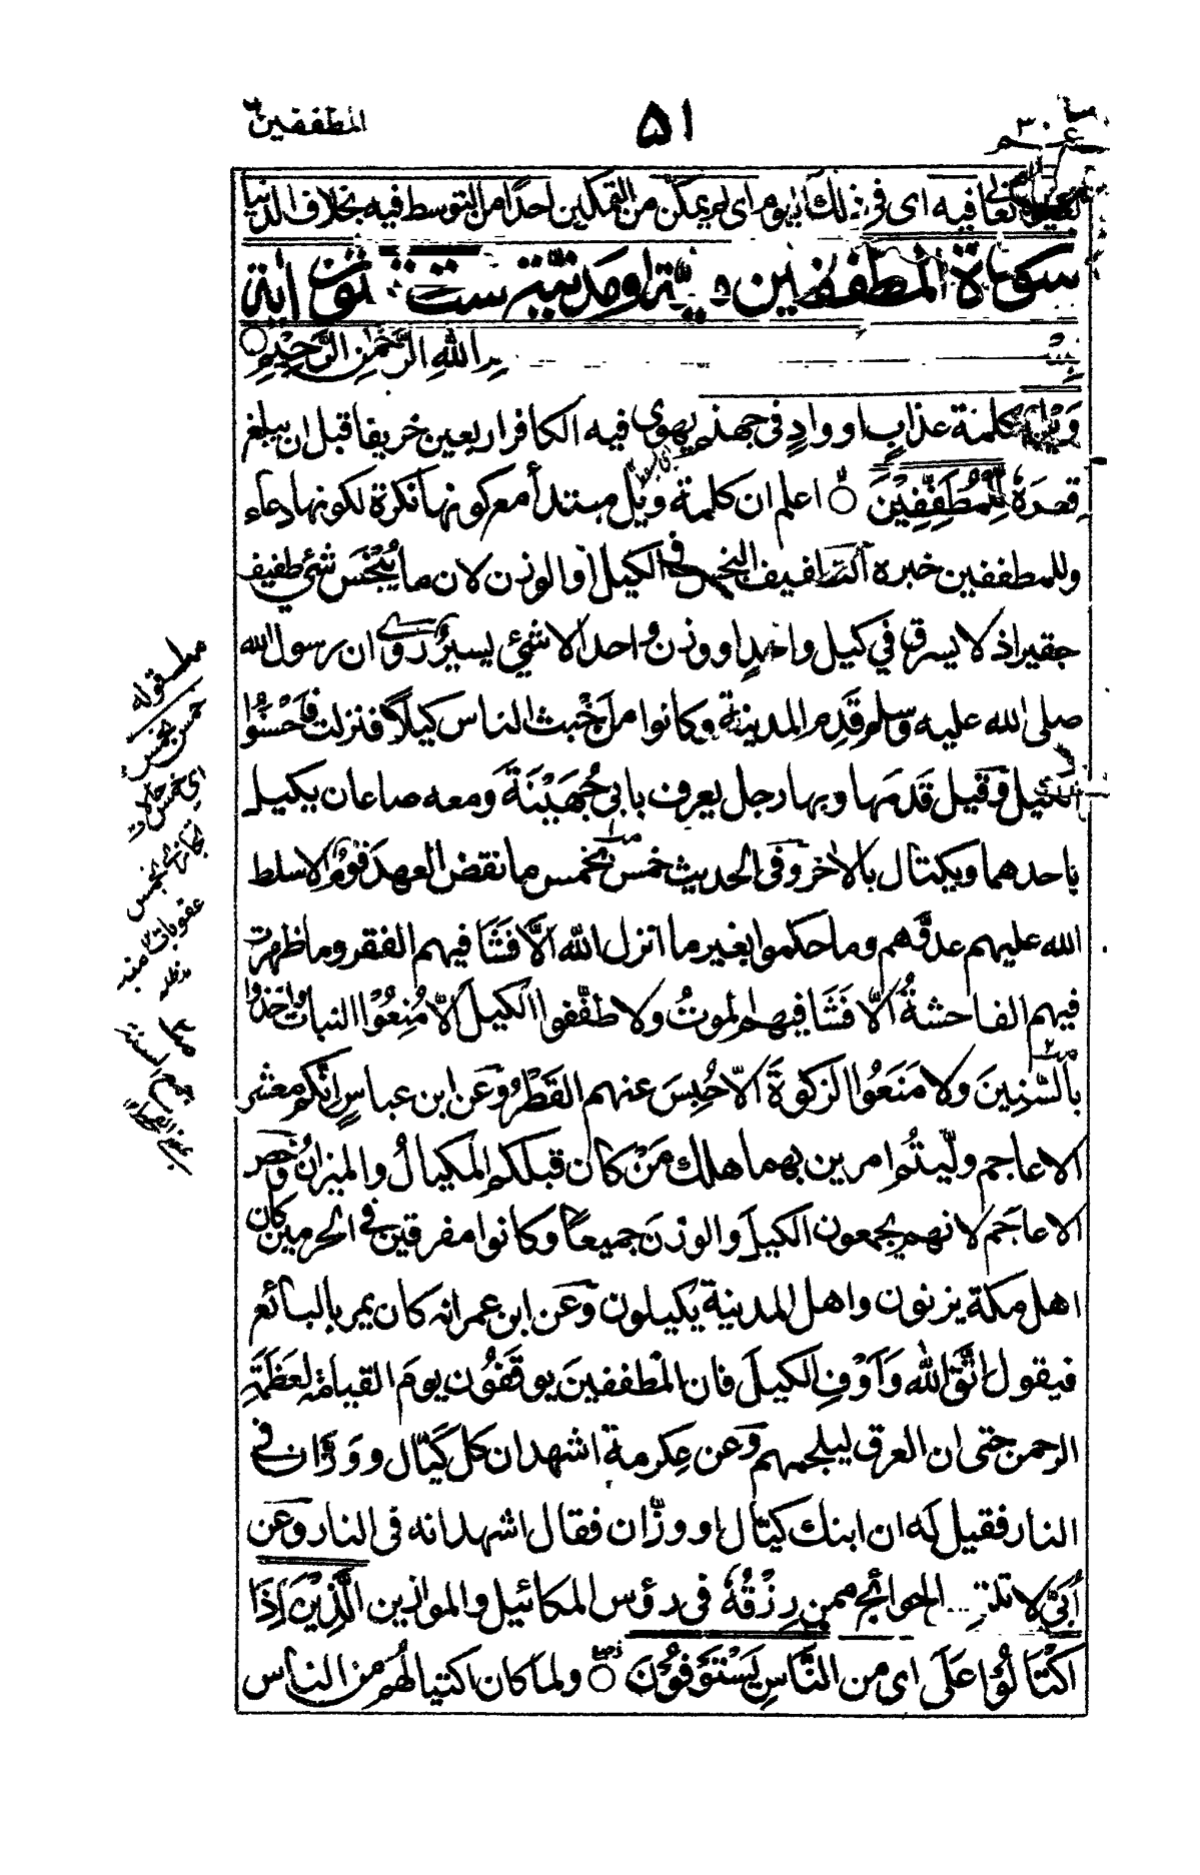 عم ٣٠
٥١
المطففين
تعا فيه اى فى ذلك اليوم اى لم يمكن من التمكين احدًا من التوسط فيه بخلاف الدنيا
سورة المطففين مكية او مدنية ست ثلثون اية
بسم الله الرَّحْمٰنِ الرَّحِيْمِ
وَيْلٌ كلمة عذابٍ او وادٍ فى جهنم يهوى فيه الكافر اربعين خريفا قبل ان يبلغ
قصرَهٗ لِّلْمُطَفِّفِيْنَ ○ اعلم ان كلمة ويل مبتدأ مع كونها نكرة لكونها دعاء
وللمطففين خبره التطفيف البخس فى الكيل او الوزن لان ما يُبْخَس شئ طفيف
حقير اذ لا يسرق في كيل واحدٍ او وزن واحد الا شئ يسير ورُوى ان رسول الله
صلى الله عليه وسلم قَدِم المدينة وكانوا من اَخْبث الناس كيلاً فنزلت فَاَحْسَنُوا
الكيل وقيل قَدمَها وبها رجل يعرف بابى جُهَيْنَةَ ومعه صاعان يكيل
باحدهما ويكتال بالاخر وفى الحديث خمس بخمس ما نقض العهد قومٌ الا سلط
الله عليهم عدوَّهم وما حكموا بغير ما انزل الله الَّا فَشَا فيهم الفقر وما ظهرت
فيهم الفاحشةُ الَّا فَشَا فيهم الموتُ ولا طفَّفوا الكيلَ الّا مُنِعُوْا النبات واُخِذُوا
بالسِّنِينَ ولا مَنَعُوا الزكوةَ الّا حُبِسَ عنهم القَطْرُ وعن ابن عباسٍ اِنَّكم معشر
الاعاجم ولّيتُم امرين بهما هلك مَنْ كان قبلكم المكيالُ والميزانُ وخصّ
الاعاجَم لانهم يجمعون الكيلَ والوزنَ جميعًا وكانوا مفرقين فى الحرمين كان
اهل مكة يزنون واهل المدينة يكيلون وعن ابن عمر انه كان يمر بالبائع
فيقول اتَّق اللهَ وَاَوْفِ الكيلَ فان المطففينَ يوقَفُون يومَ القيامة لعَظَمَةِ
الرحمن حتى ان العرق ليلجمهم وعن عِكرمة اشهد ان كل كَيّال ووزّان فى
النار فقيل له ان ابنك كيّال او وزّان فقال اشهد انه فى النار وعن
اُبَىٍّ لا تلتمس الحوائج ممن رِزْقُهٗ فى رؤس المكائيل والموازين الَّذِيْنَ اِذَا
اكْتَالُوْا عَلَى اى من النَّاسِ يَسْتَوْفُوْنَ ○ ولما كان اكتيالهُم من الناس
قوله
خمس بخمس
اى خمس
بخمس
عقوبات منه
مدظله